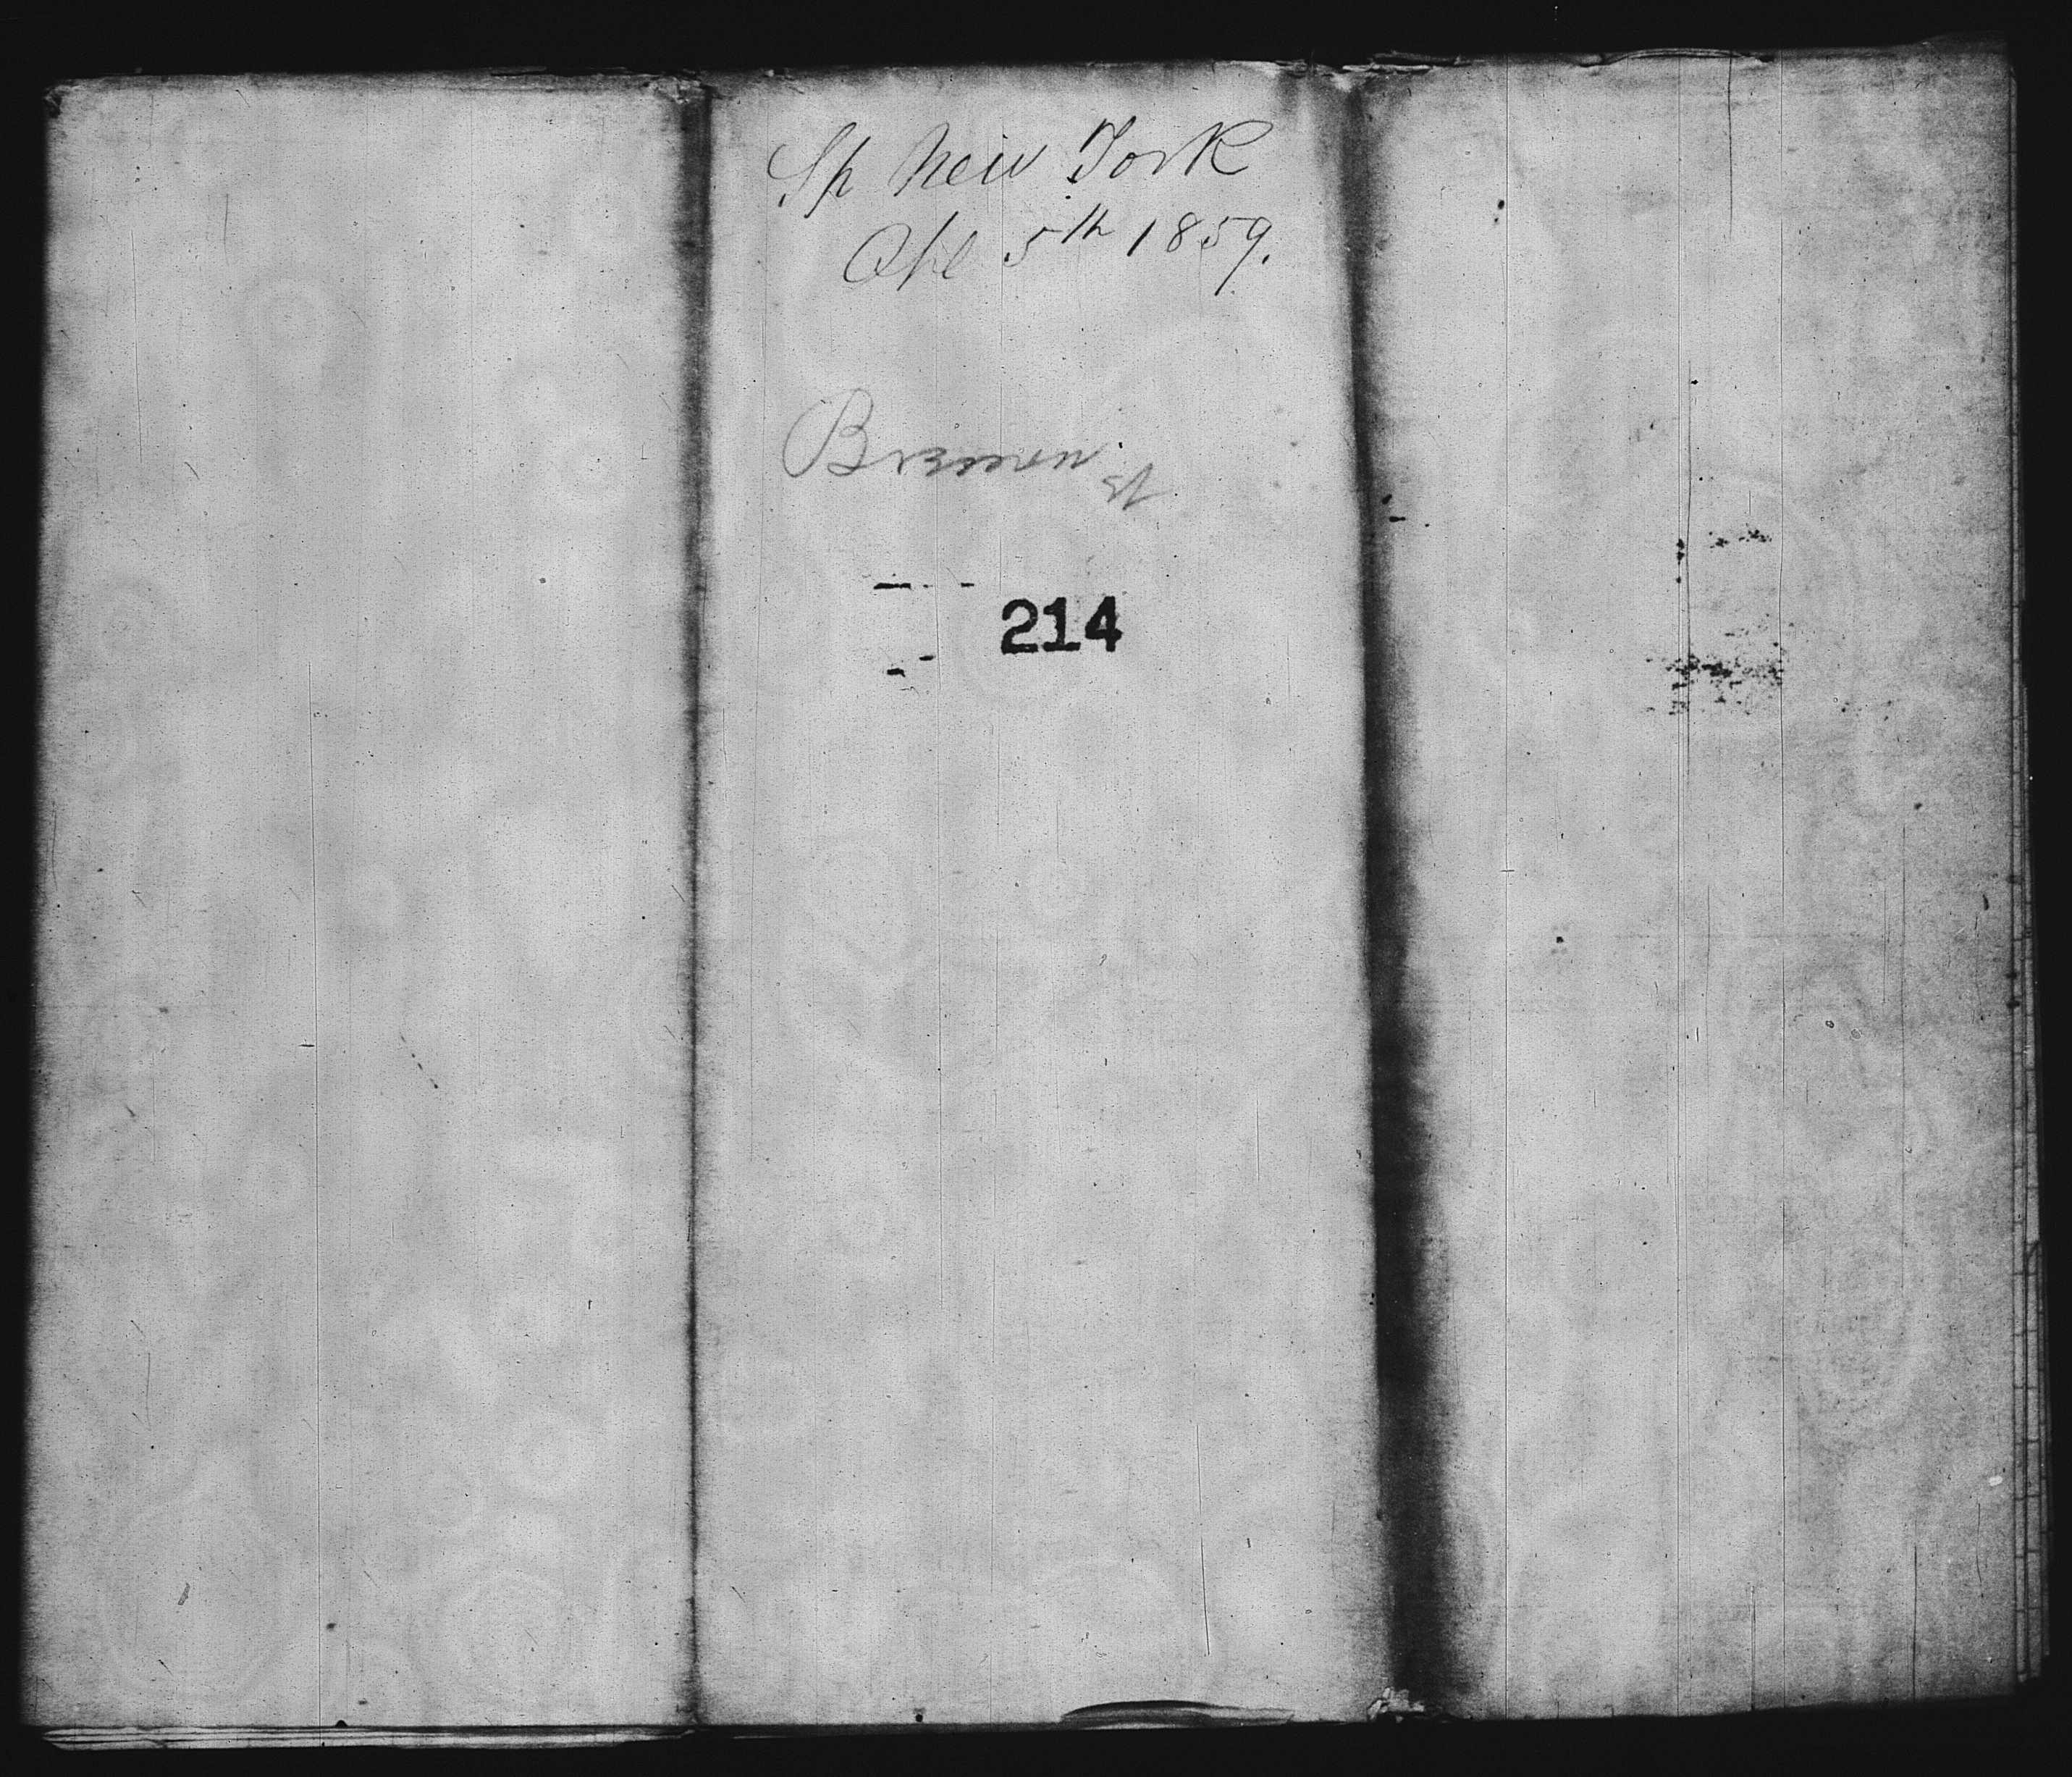 Sp New York
Apl 5th 1859.
Bremen
214